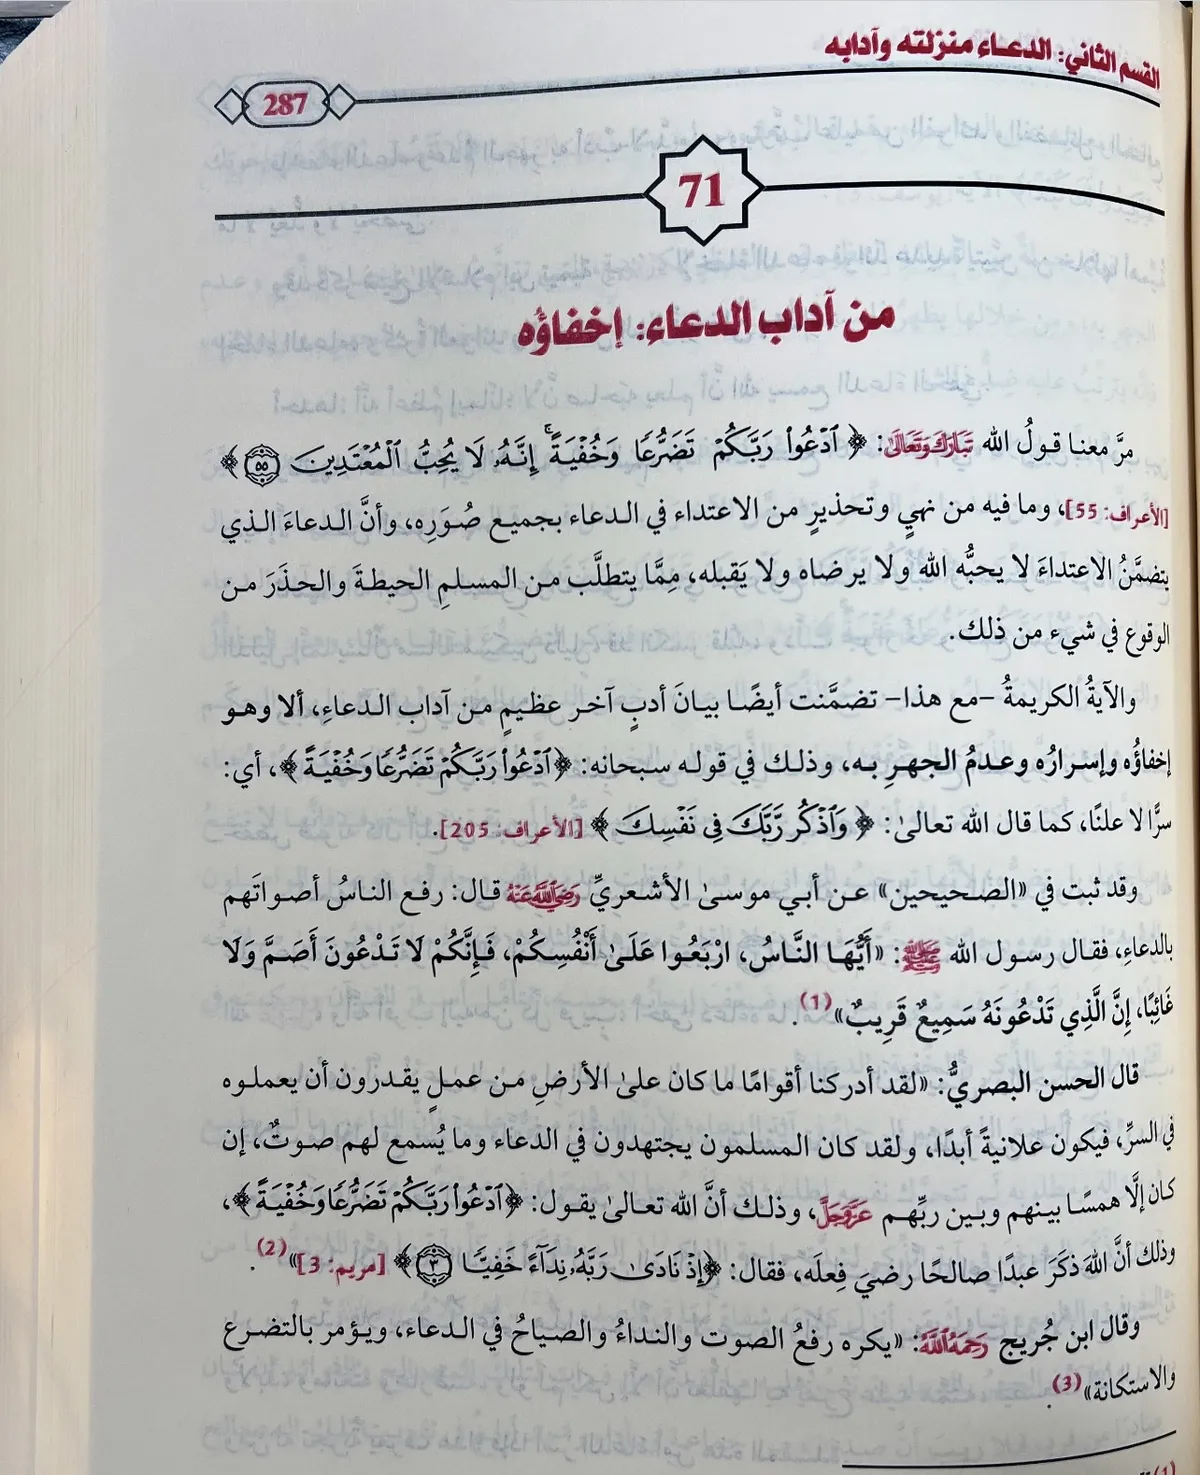 القسم الثاني: الدعـاء منزلته وآدابه
287
71
من آداب الدعاء: إخفاؤه
مرَّ معنا قولُ الله تَبَارَكَوَتَعَالَىٰ: ﴿ ٱدۡعُواْ رَبَّكُمۡ تَضَرُّعٗا وَخُفۡيَةًۚ إِنَّهُۥ لَا يُحِبُّ ٱلۡمُعۡتَدِينَ ٥٥ ﴾
[الأعراف: 55]، وما فيه من نهيٍ وتحذيرٍ من الاعتداء في الدعاء بجميع صُوَرِه، وأنَّ الدعاءَ الذي
يتضمَّنُ الاعتداءَ لا يحبُّه الله ولا يرضاه ولا يَقبله، مِمَّا يتطلَّب من المسلمِ الحيطةَ والحذَرَ من
الوقوع في شيء من ذلك.
والآيةُ الكريمةُ –مع هذا– تضمَّنت أيضًا بيانَ أدبٍ آخر عظيمٍ من آداب الدعاءِ، ألا وهو
إخفاؤُه وإسرارُه وعدمُ الجهرِ به، وذلك في قوله سبحانه: ﴿ٱدۡعُواْ رَبَّكُمۡ تَضَرُّعٗا وَخُفۡيَةً﴾، أي:
سرًّا لا علنًا، كما قال الله تعالىٰ: ﴿ وَٱذۡكُر رَّبَّكَ فِي نَفۡسِكَ ﴾ [الأعراف: 205].
وقد ثبت في «الصحيحين» عن أبي موسىٰ الأشعريِّ رَضِيَٱللَّهُعَنْهُ قال: رفع الناسُ أصواتَهم
بالدعاءِ، فقال رسول الله ﷺ: «أَيُّهَا النَّاسُ، ارْبَعُوا عَلَىٰ أَنْفُسِكُمْ، فَإِنَّكُمْ لَا تَدْعُونَ أَصَمَّ وَلَا
غَائِبًا، إِنَّ الَّذِي تَدْعُونَهُ سَمِيعٌ قَرِيبٌ»(1).
قال الحسن البصريُّ: «لقد أدركنا أقوامًا ما كان علىٰ الأرضِ من عملٍ يقدرون أن يعملوه
في السرِّ، فيكون علانيةً أبدًا، ولقد كان المسلمون يجتهدون في الدعاء وما يُسمع لهم صوتٌ، إن
كان إلَّا همسًا بينهم وبين ربِّهم عَزَّوَجَلَّ، وذلك أنَّ الله تعالىٰ يقول: ﴿ٱدۡعُواْ رَبَّكُمۡ تَضَرُّعٗا وَخُفۡيَةً﴾،
وذلك أنَّ اللهَ ذكَرَ عبدًا صالحًا رضيَ فِعلَه، فقال: ﴿إِذۡ نَادَىٰ رَبَّهُۥ نِدَآءً خَفِيّٗا ٣﴾ [مريم: 3]»(2).
وقال ابن جُريج رَحِمَهُٱللَّهُ: «يكره رفعُ الصوت والنداءُ والصياحُ في الدعاء، ويؤمر بالتضرع
والاستكانة»(3).
(1)